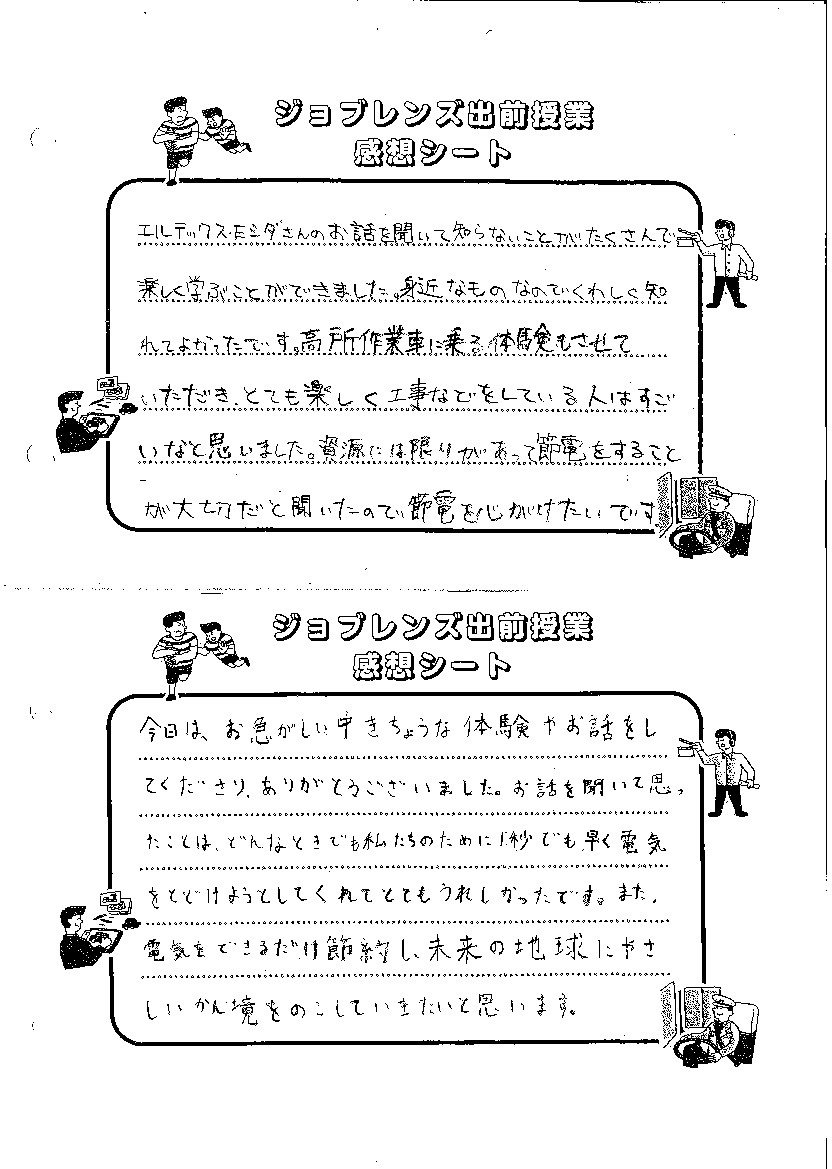 ジョブレンズ出前授業
感想シート
エルテックス・モシダさんのお話を聞いて知らないことがたくさんで
楽しく学ぶことができました。身近なものなのでくわしく知
れてよかったです。高所作業車に乗る体験もさせて
いただき、とても楽しく工事などをしている人はすご
いなと思いました。資源には限りがあって節電をすること
が大切だと聞いたので節電を心がけたいです。
ジョブレンズ出前授業
感想シート
今日は、お急がしい中きちょうな体験やお話をし
てくださり、ありがとうございました。お話を聞いて思っ
たことは、どんなときでも私たちのために1秒でも早く電気
をとどけようとしてくれてとてもうれしかったです。また、
電気をできるだけ節約し、未来の地球にやさ
しいかん境をのこしていきたいと思います。